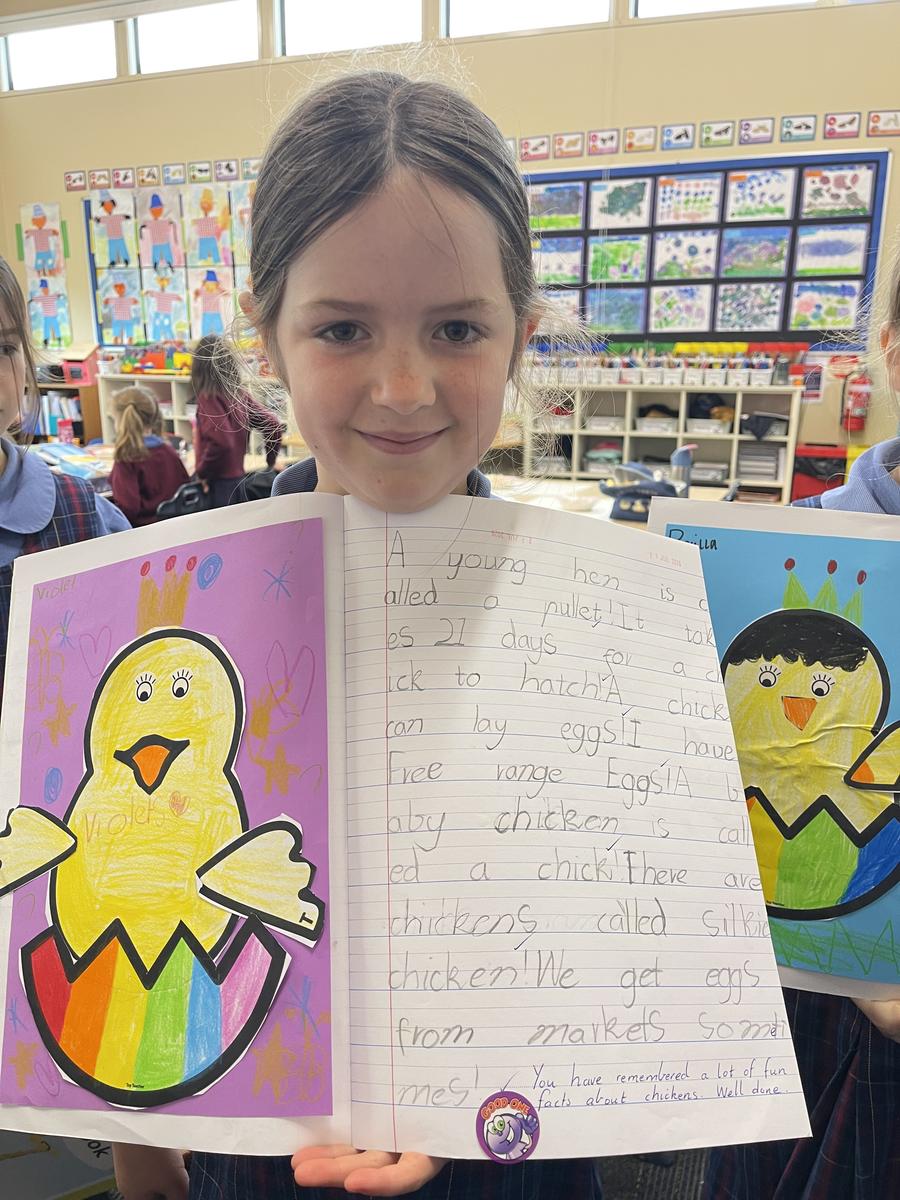 Violet
Violet
A young hen is c
alled a pullet! It tak
es 21 days for a ch
ick to hatch! A chick
can lay eggs! I have
Free range Eggs! A b
aby chicken is call
ed a chick! There are
chickens called silkie
chicken! We get eggs
from markets someti
mes!
You have remembered a lot of fun
facts about chickens. Well done.
GOOD ONE